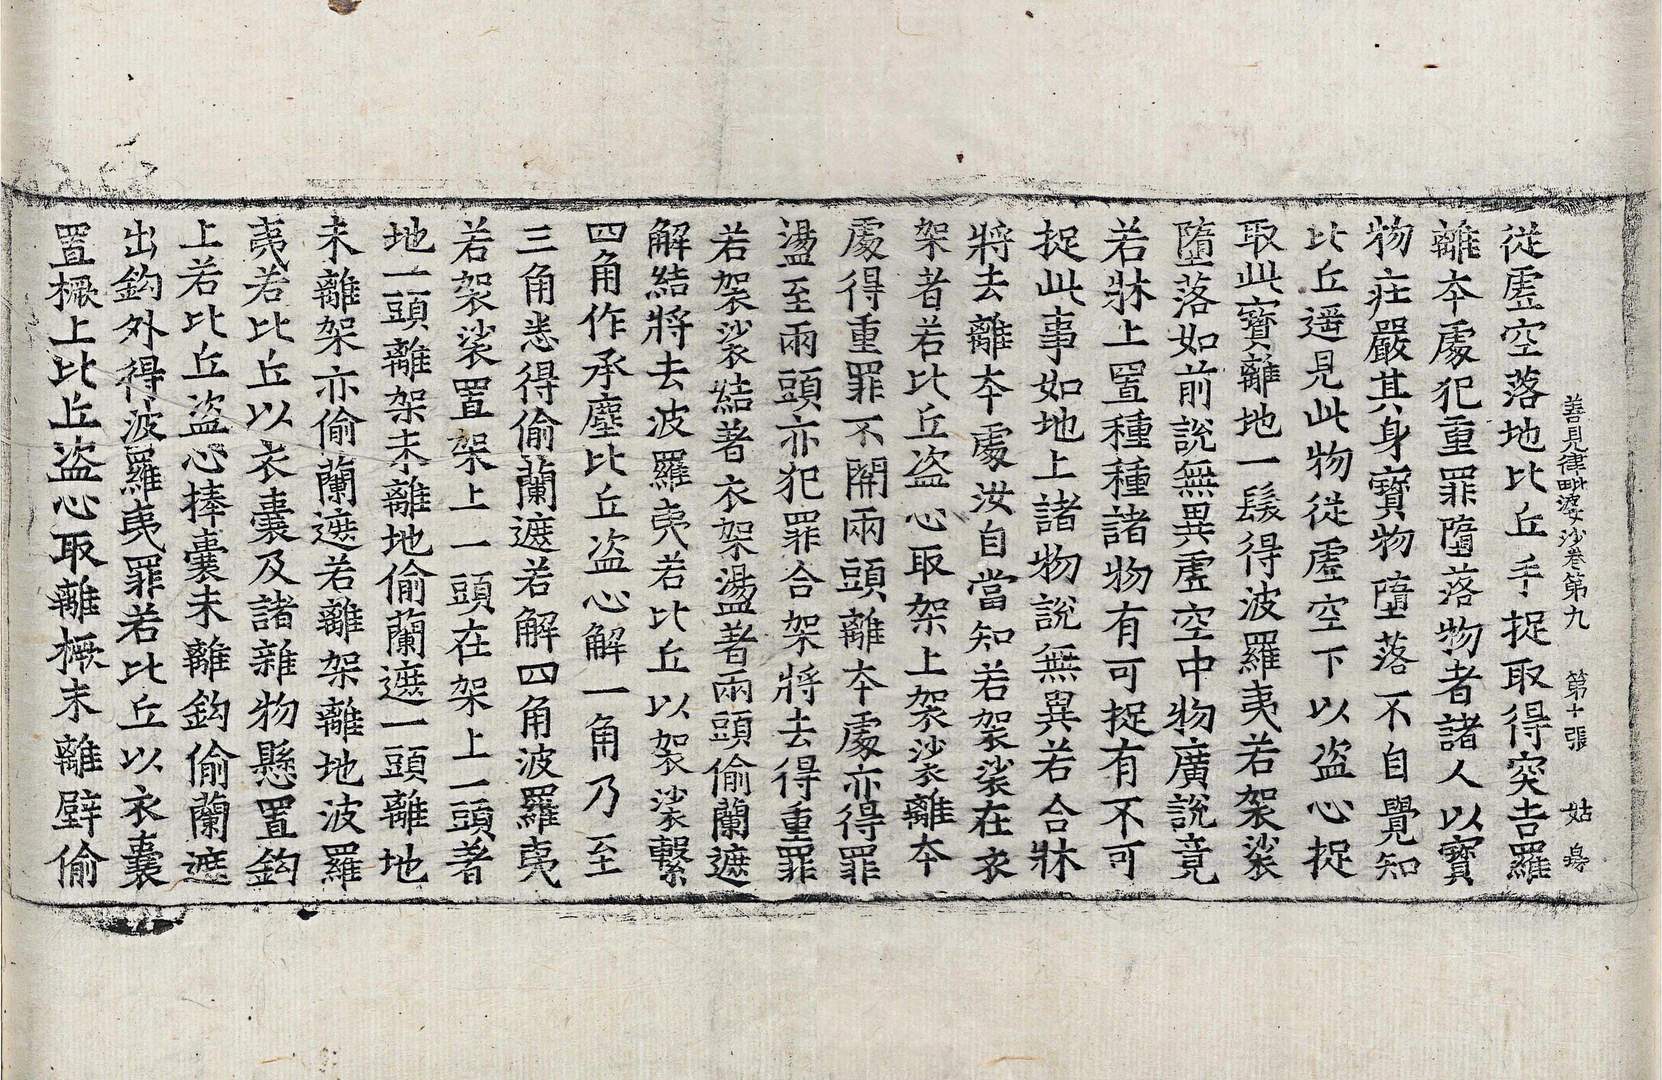 善見律毗婆沙卷第九 第十張 姑
從虛空落地比丘手捉取得突吉羅
離本處犯重罪墮落物者諸人以寶
物莊嚴其身寶物墮落不自覺知
比丘遥見此物從虛空下以盗心捉
取此寶離地一髮得波羅夷若袈裟
墮落如前說無異虛空中物廣說竟
若牀上置種種諸物有可捉有不可
捉此事如地上諸物說無異若合牀
將去離本處汝自當知若袈裟在衣
架者若比丘盗心取架上袈裟離本
處得重罪不關兩頭離本處亦得罪
盪至兩頭亦犯罪合架將去得重罪
若袈裟結著衣架盪著兩頭偷蘭遮
解結將去波羅夷若比丘以袈裟繫
四角作承塵比丘盗心解一角乃至
三角悉得偷蘭遮若解四角波羅夷
若袈裟置架上一頭在架上一頭著
地一頭離架未離地偷蘭遮一頭離地
未離架亦偷蘭遮若離架離地波羅
夷若比丘以衣囊及諸雜物懸置鈎
上若比丘盗心捧囊未離鈎偷蘭遮
出鈎外得波羅夷罪若比丘以衣囊
置橛上比丘盗心取離橛未離壁偷